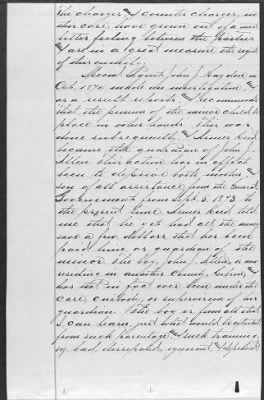 The charges and counter charges, in
this case, have grown out of a most
bitter feeling between the parties
and are in a great measure the result
of this enmity.
Special Agent John J. Hayden in
Oct. 1872 made one investigation,
as a result reports, and recommends
that the pension of the minor child be
placed in other hands. This was
done subsequently and Abner Reed
became the guardian of John J.
Allen. This action has in effect
been to deprive both mother and
son of all assistance from the General
Government from Sept. 3, 1873 to
the present time. Abner Reed told
me that he yet had all the money
save a few dollars that has been
paid him as guardian of the
minor. The boy, John J. Allen, is now
residing in another County, and
has not in fact ever been under the
care, custody, or supervision of his
guardian. The boy is from all that
I can learn, just what would be expected
from such parentage and such training
viz. bad, disreputable, ignorant, and